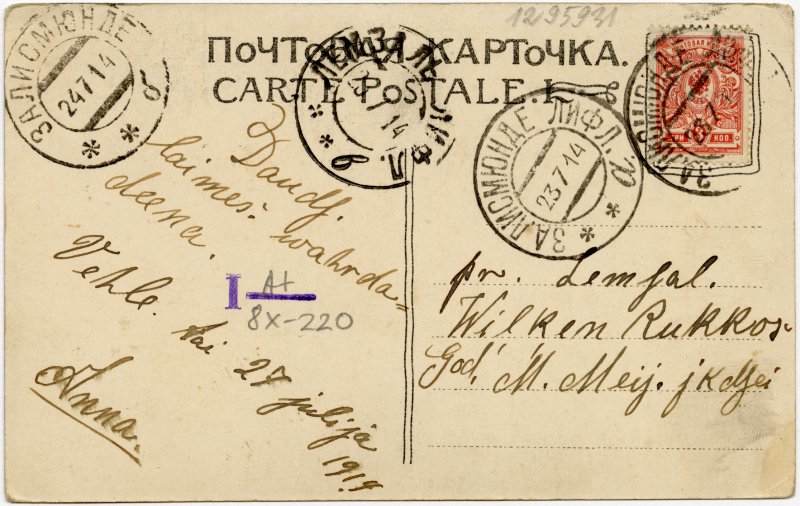 1295931
ПОЧТОВАЯ КАРТОЧКА.
CARTE POSTALE.
ЗАЛИСМЮНДЕ
24 7 14
б
ЛЕМЗАЛЬ ЛИФЛ
23 7 14
в
ЗАЛИСМЮНДЕ ЛИФЛ.
23 7 14
а
ЗАЛИСМЮНДЕ
ТРИ 3 КОП.
Daudz
laimes wahrda-
deenā.
Vehle.
tai 27 julijā
1914
Anna.
I A+
8X-220
pr. Lemsal.
Wilken Rukkos-
God. M. Meij. jkdzei